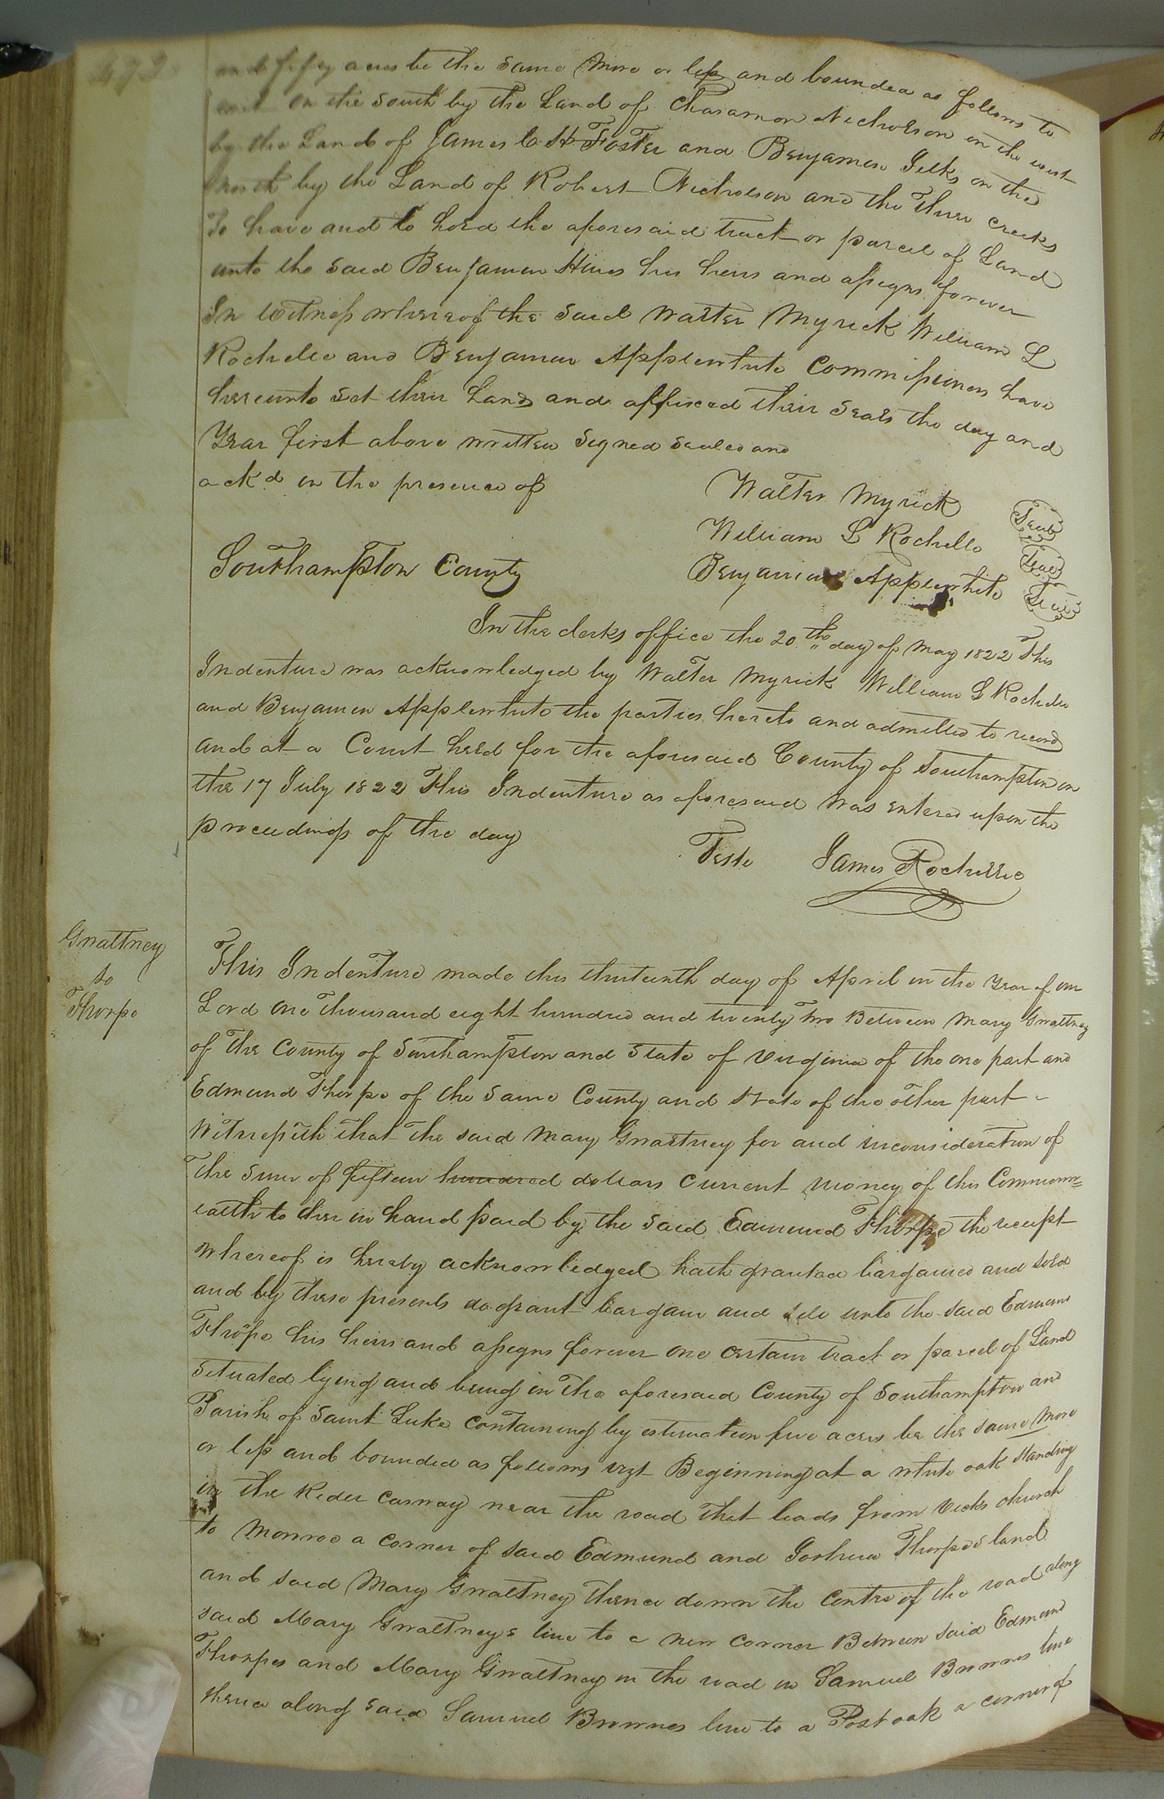 and fifty acres be the same more or less and bounded as follows to
wit on the south by the Land of Charamon Nicholson on the west
by the Land of James C H Foster and Benjamin Gilks on the
north by the Land of Robert Nicholson and the Three creeks
To have and to hold the aforesaid tract or parcel of Land
unto the said Benjamin Hines his heirs and assigns forever
In witness whereof the said Walter Myrick William L
Rochelle and Benjamin Applewhite Commissioners have
hereunto set their hands and affixed their seals the day and
Year first above written signed sealed and
ackd in the presence of
Walter Myrick Seal
William L Rochelle Seal
Benjamin Applewhite Seal
Southampton County
In the clerks office the 20th day of May 1822 This
Indenture was acknowledged by Walter Myrick William L Rochelle
and Benjamin Applewhite the parties hereto and admitted to record
and at a Court held for the aforesaid County of Southampton on
the 17 July 1822 This Indenture as aforesaid was entered upon the
proceedings of the day
Teste James Rochelle
Gwaltney
to
Thorpe
This Indenture made this thirteenth day of April in the Year of our
Lord one Thousand eight hundred and twenty two Between Mary Gwaltney
of the County of Southampton and State of Virginia of the one part and
Edmund Thorpe of the same County and State of the other part
Witnesseth that the said Mary Gwaltney for and inconsideration of
The sum of fifteen hundred dollars current money of this Common=
wealth to her in hand paid by the said Edmund Thorpe the receipt
whereof is hereby acknowledged hath granted bargained and sold
and by these presents do grant bargain and sell unto the said Edmund
Thorpe his heirs and assigns forever one certain tract or parcel of Land
situated lying and being in the aforesaid County of Southampton and
Parish of Saint Luke containing by estimation five acres be the same more
or less and bounded as follows vizt Beginning at a white oak standing
in the Rider near the road that leads from Vicks church
to Monroe a corner of said Edmund and Joshua Thorpes land
and said Mary Gwaltney thence down the centre of the road along
said Mary Gwaltneys line to a new corner Between said Edmund
Thorpes and Mary Gwaltney in the road in Samuel Brownes line
thence along said Samuel Brownes line to a Post oak a corner of